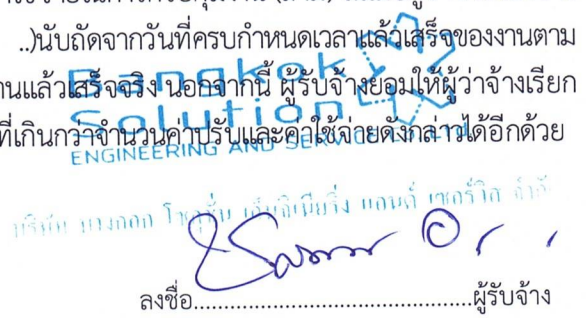 ..)นับถัดจากวันที่ครบกำหนดเวลาแล้วเสร็จของงานตาม
านแล้วเสร็จจริง นอกจากนี้ ผู้รับจ้างยอมให้ผู้ว่าจ้างเรียก
ที่เกินกว่าจำนวนค่าปรับและค่าใช้จ่ายดังกล่าวได้อีกด้วย
Bangkok
Solution
ENGINEERING AND SERVICE
บริษัท บางกอก โซลูชั่น เอ็นจิเนียริ่ง แอนด์ เซอร์วิส จำกั
ลงชื่อ.............................................ผู้รับจ้าง